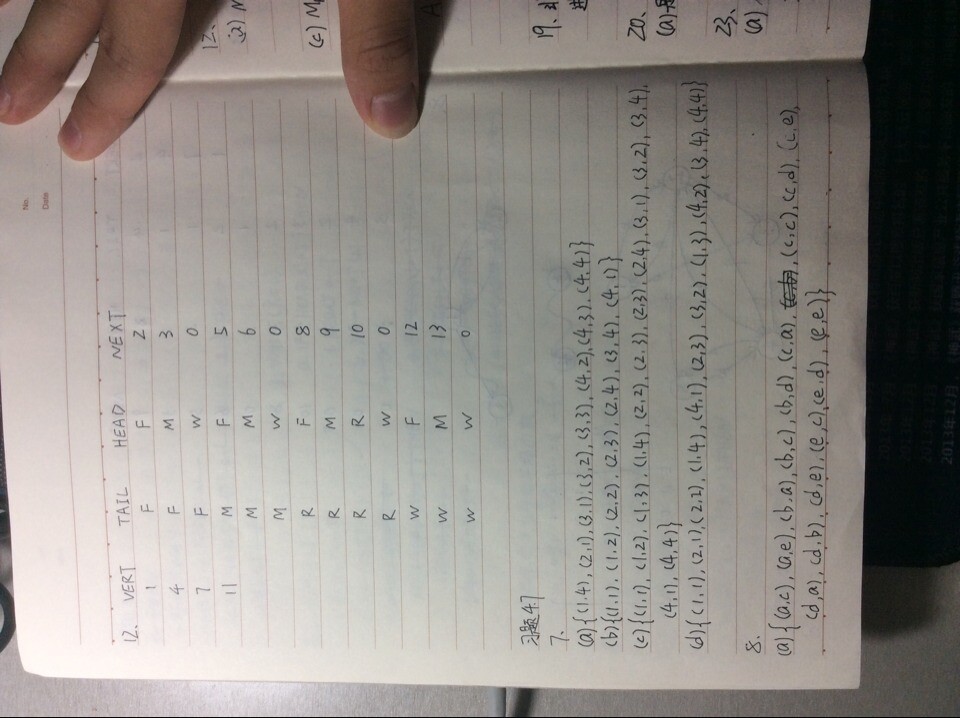 No.
Date
12. VERT TAIL HEAD NEXT
1 F F 2
4 F M 3
7 F W 0
11 M F 5
M M 6
M W 0
R F 8
R M 9
R R 10
R W 0
W F 12
W M 13
W W 0
习题4.7
7.
(a){(1,4),(2,1),(3,1),(3,2),(3,3),(4,2),(4,3),(4,4)}
(b){(1,1),(1,2),(2,2),(2,3),(2,4),(3,4),(4,1)}
(c){(1,1),(1,2),(1,3),(1,4),(2,2),(2,3),(2,3),(2,4),(3,1),(3,2),(3,4),
(4,1),(4,4)}
(d){(1,1),(2,1),(2,2),(1,4),(4,1),(2,3),(3,2),(1,3),(4,2),(3,4),(4,4)}
8.
(a){(a,c),(a,e),(b,a),(b,c),(b,d),(c,a),(c,c),(c,d),(c,e),
(d,a),(d,b),(d,e),(e,c),(e,d),(e,e)}
12.
(a) M
(c) M
19.
20.
(a)
23.
(a)
2013年12月